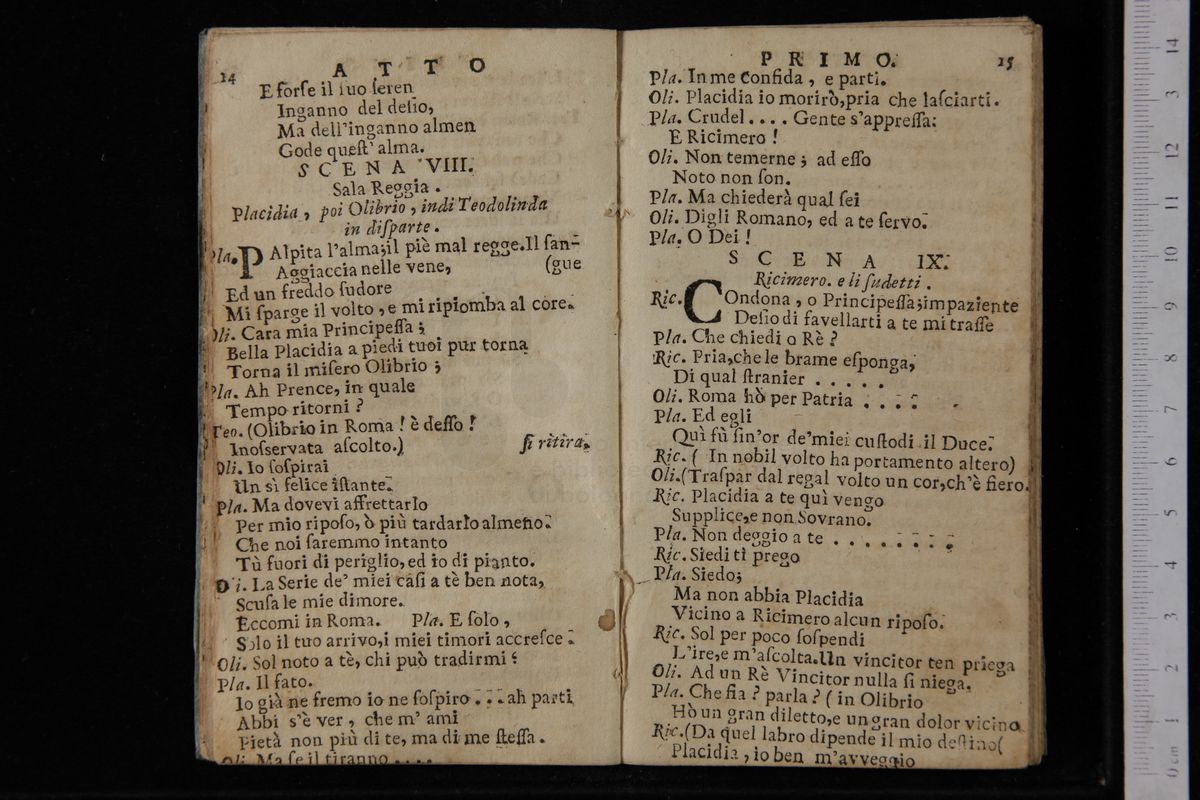 14
A T T O
E forſe il ſuo ſeren
Inganno del deſio,
Ma dell'inganno almen
Gode queſt' alma.
S C E N A VIII.
Sala Reggia .
Placidia , poi Olibrio , indi Teodolinda
in diſparte .
Pla. PAlpita l'alma;il piè mal regge.Il ſan-
Aggiaccia nelle vene, (gue
Ed un freddo ſudore
Mi ſparge il volto , e mi ripiomba al core.
Oli. Cara mia Principeſſa ;
Bella Placidia a piedi tuoi pur torna
Torna il miſero Olibrio ;
Pla. Ah Prence, in quale
Tempo ritorni ?
Teo. (Olibrio in Roma ! è deſſo !
Inoſservata aſcolto.) ſi ritira.
Oli. Io ſoſpirai
Un sì felice iſtante.
Pla. Ma dovevi affrettarlo
Per mio ripoſo, ò più tardarlo almeno.
Che noi ſaremmo intanto
Tù fuori di periglio, ed io di pianto.
Oli. La Serie de' miei caſi a tè ben nota,
Scuſa le mie dimore.
Eccomi in Roma. Pla. E ſolo ,
Solo il tuo arrivo,i miei timori accreſce .
Oli. Sol noto a tè, chi può tradirmi ?
Pla. Il fato.
Io già ne fremo io ne ſoſpiro . . . ah parti
Abbi s'è ver , che m' ami
Pietà non più di te, ma di me ſteſſa .
Oli. Ma ſe il tiranno . . . .
P R I M O.
15
Pla. In me Confida , e parti.
Oli. Placidia io morirò,pria che laſciarti.
Pla. Crudel . . . . Gente s'appreſſa:
E Ricimero !
Oli. Non temerne ; ad eſſo
Noto non ſon.
Pla. Ma chiederà qual ſei
Oli. Digli Romano, ed a te ſervo.
Pla. O Dei !
S C E N A IX.
Ricimero. e li ſudetti .
Ric. COndona , o Principeſſa;impaziente
Deſio di favellarti a te mi traſſe
Pla. Che chiedi o Rè ?
Ric. Pria,che le brame eſponga,
Di qual ſtranier . . . . .
Oli. Roma hò per Patria . . . .
Pla. Ed egli
Quì fù ſin'or de'miei cuſtodi il Duce.
Ric. ( In nobil volto ha portamento altero)
Oli.(Traſpar dal regal volto un cor,ch'è fiero.
Ric. Placidia a te quì vengo
Supplice,e non Sovrano.
Pla. Non deggio a te . . . . . . . .
Ric. Siedi tì prego
Pla. Siedo;
Ma non abbia Placidia
Vicino a Ricimero alcun ripoſo.
Ric. Sol per poco ſoſpendi
L'ire,e m'aſcolta.Un vincitor ten priega
Oli. Ad un Rè Vincitor nulla ſi niega.
Pla. Che fia ? parla ? ( in Olibrio
Hò un gran diletto,e un gran dolor vicino
Ric.(Da quel labro dipende il mio deſtino(
Placidia , io ben m'avveggio